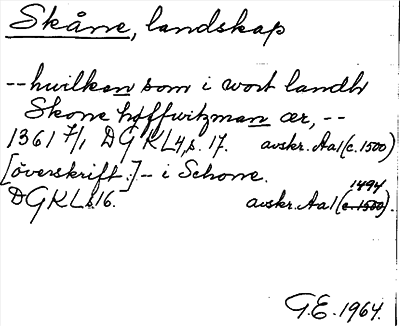 Skåne, landskap
--hwilken som i wort landh
Skone höffwitzman ær, --
1361 7/1 DGKL4, s. 17. avskr. Aa1 (c. 1500)
[överskrift:] -- i Schone.
DGKL s.16. avskr. Aa1 (c. 1500).
1494
G.E. 1964.